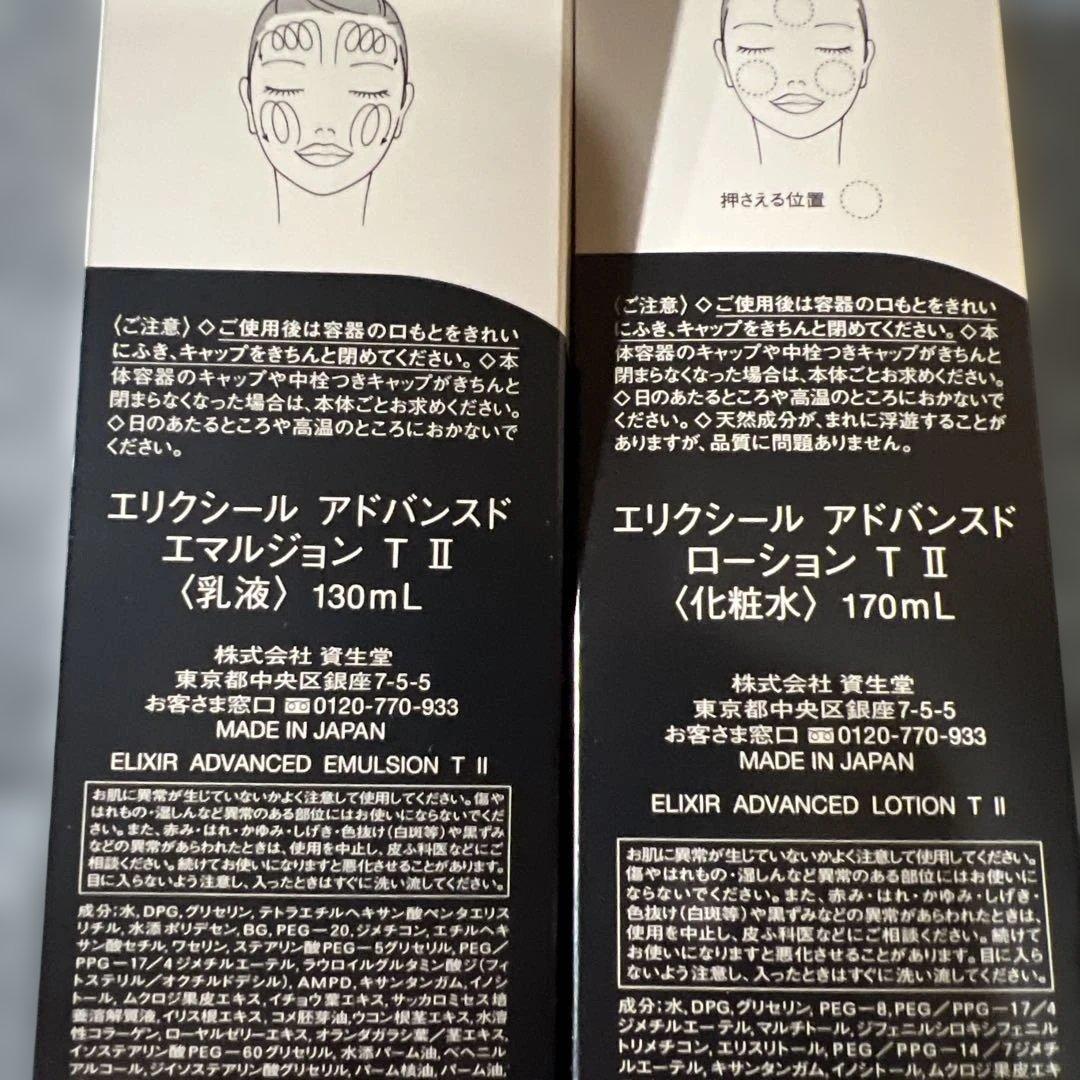 〈ご注意〉◇ご使用後は容器の口もとをきれい
にふき、キャップをきちんと閉めてください。◇本
体容器のキャップや中栓つきキャップがきちんと
閉まらなくなった場合は、本体ごとお求めください。
◇日のあたるところや高温のところにおかないで
ください。
エリクシール アドバンスド
エマルジョン T II
〈乳液〉 130mL
株式会社 資生堂
東京都中央区銀座7-5-5
お客さま窓口 0120-770-933
MADE IN JAPAN
ELIXIR ADVANCED EMULSION T II
お肌に異常が生じていないかよく注意して使用してください。傷や
はれもの・湿しんなど異常のある部位にはお使いにならないでくだ
さい。また、赤み・はれ・かゆみ・しげき・色抜け(白斑等)や黒ずみ
などの異常があらわれたときは、使用を中止し、皮ふ科医などにご
相談ください。続けてお使いになりますと悪化させることがあります。
目に入らないよう注意し、入ったときはすぐに洗い流してください。
成分:水,DPG,グリセリン,テトラエチルヘキサン酸ペンタエリス
リチル,水添ポリデセン,BG,PEG-20,ジメチコン,エチルヘキ
サン酸セチル,ワセリン,ステアリン酸PEG-5グリセリル,PEG/
PPG-17/4ジメチルエーテル,ラウロイルグルタミン酸ジ(フィ
トステリル/オクチルドデシル),AMPD,キサンタンガム,イノシ
トール,ムクロジ果皮エキス,イチョウ葉エキス,サッカロミセス培
養溶解質液,イリス根エキス,コメ胚芽油,ウコン根茎エキス,水溶
性コラーゲン,ローヤルゼリーエキス,オランダガラシ葉/茎エキス,
イソステアリン酸PEG-60グリセリル,水添パーム油,ベヘニル
アルコール,ジイソステアリン酸グリセリル,パーム核油,パーム油,
押さえる位置
〈ご注意〉◇ご使用後は容器の口もとをきれい
にふき、キャップをきちんと閉めてください。◇本
体容器のキャップや中栓つきキャップがきちんと
閉まらなくなった場合は、本体ごとお求めください。
◇日のあたるところや高温のところにおかないで
ください。◇天然成分が、まれに浮遊することが
ありますが、品質に問題ありません。
エリクシール アドバンスド
ローション T II
〈化粧水〉 170mL
株式会社 資生堂
東京都中央区銀座7-5-5
お客さま窓口 0120-770-933
MADE IN JAPAN
ELIXIR ADVANCED LOTION T II
お肌に異常が生じていないかよく注意して使用してください。
傷やはれもの・湿しんなど異常のある部位にはお使いに
ならないでください。また、赤み・はれ・かゆみ・しげき・
色抜け(白斑等)や黒ずみなどの異常があらわれたときは、
使用を中止し、皮ふ科医などにご相談ください。続けて
お使いになりますと悪化させることがあります。目に入ら
ないよう注意し、入ったときはすぐに洗い流してください。
成分:水,DPG,グリセリン,PEG-8,PEG/PPG-17/4
ジメチルエーテル,マルチトール,ジフェニルシロキシフェニル
トリメチコン,エリスリトール,PEG/PPG-14/7ジメチ
ルエーテル,キサンタンガム,イノシトール,ムクロジ果皮エキ